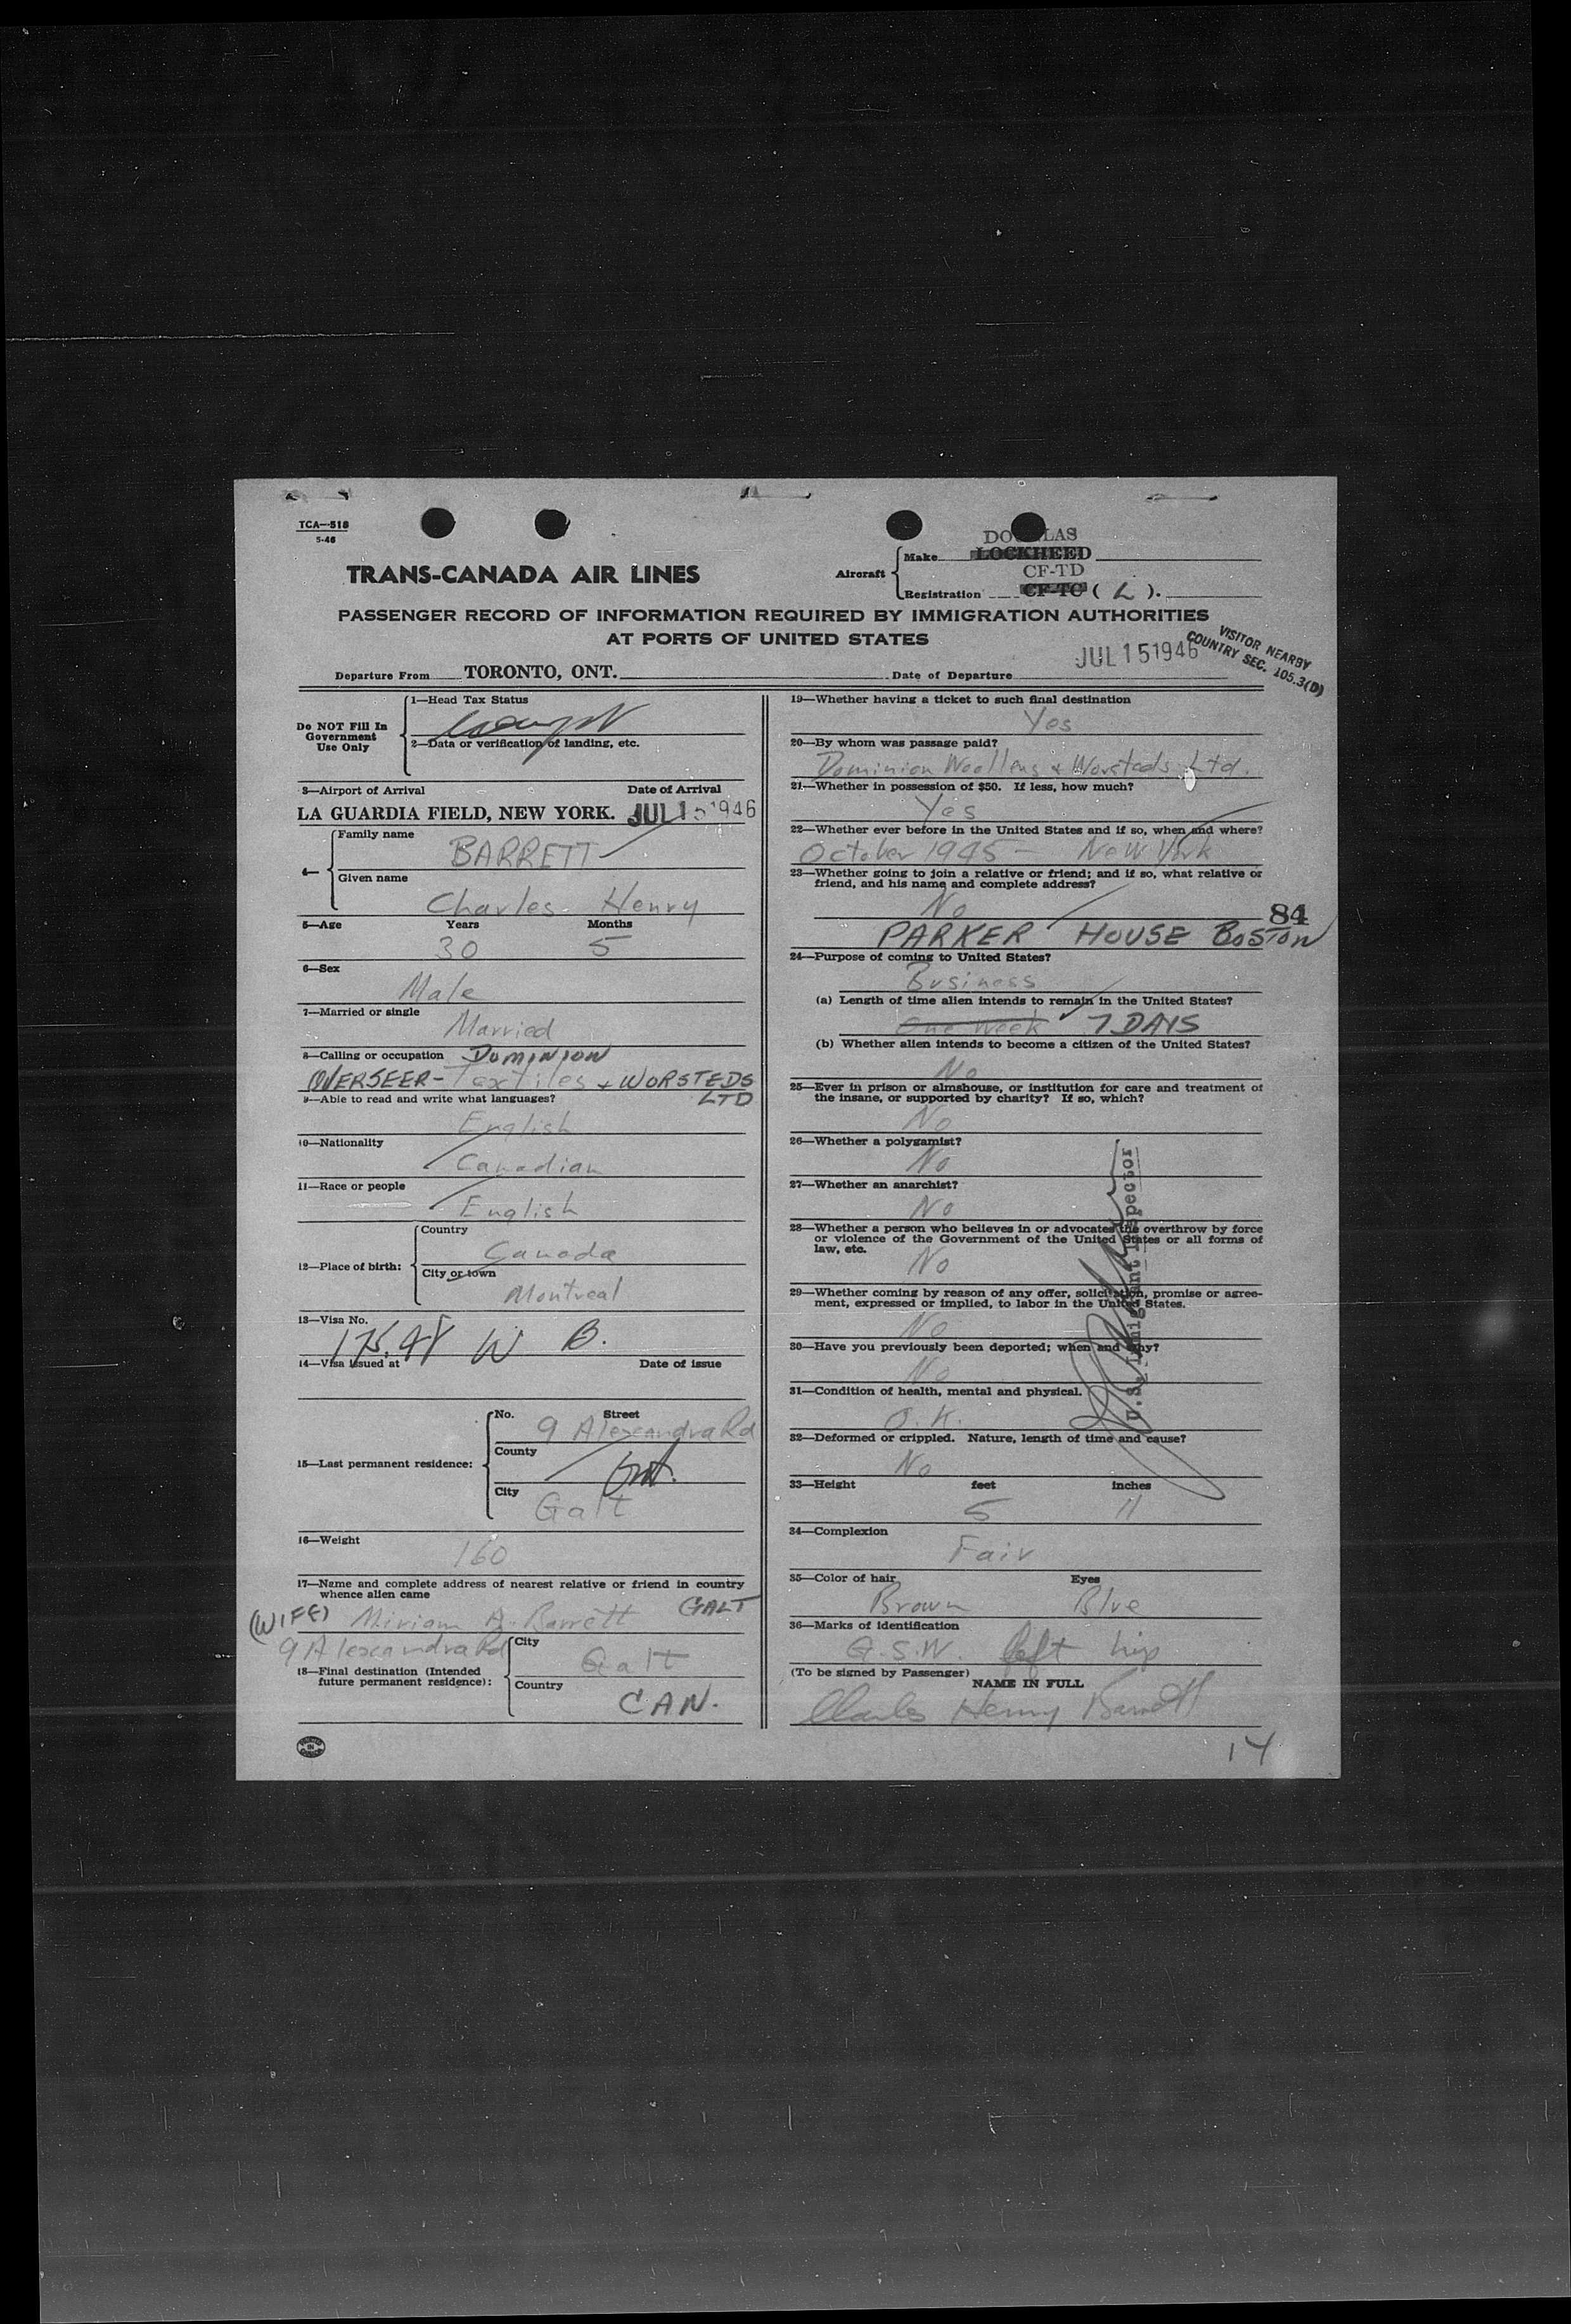 TCA—518
5-46
TRANS-CANADA AIR LINES
DOUGLAS
Aircraft
Make LOCKHEED
CF-TD
Registration CF-TC ( L ).
PASSENGER RECORD OF INFORMATION REQUIRED BY IMMIGRATION AUTHORITIES
AT PORTS OF UNITED STATES
VISITOR NEARBY
COUNTRY SEC. 105.3(D)
JUL 15 1946
Departure From TORONTO, ONT. Date of Departure
Do NOT Fill In
Government
Use Only
1—Head Tax Status
2—Data or verification of landing, etc.
3—Airport of Arrival Date of Arrival
LA GUARDIA FIELD, NEW YORK. JUL 15 1946
4—
Family name
BARRETT
Given name
Charles Henry
5—Age Years Months
30 5
6—Sex
Male
7—Married or single
Married
8—Calling or occupation DOMINION
OVERSEER - Textiles + WORSTEDS
LTD
9—Able to read and write what languages?
English
10—Nationality
Canadian
11—Race or people
English
12—Place of birth:
Country
Canada
City or town
Montreal
13—Visa No.
W B.
14—Visa issued at Date of issue
15—Last permanent residence:
No. Street
9 Alexandra Rd
County
Ont.
City
Galt
16—Weight
160
17—Name and complete address of nearest relative or friend in country
whence alien came
(WIFE) Miriam A. Barrett GALT
9 Alexandra Rd
18—Final destination (Intended
future permanent residence):
City
Galt
Country
CAN.
19—Whether having a ticket to such final destination
Yes
20—By whom was passage paid?
Dominion Woollens & Worsteds Ltd.
21—Whether in possession of $50. If less, how much?
Yes
22—Whether ever before in the United States and if so, when and where?
October 1945 — New York
23—Whether going to join a relative or friend; and if so, what relative or
friend, and his name and complete address?
No
84
PARKER HOUSE BOSTON
24—Purpose of coming to United States?
Business
(a) Length of time alien intends to remain in the United States?
One Week 7 DAYS
(b) Whether alien intends to become a citizen of the United States?
No
25—Ever in prison or almshouse, or institution for care and treatment of
the insane, or supported by charity? If so, which?
No
26—Whether a polygamist?
No
27—Whether an anarchist?
No
28—Whether a person who believes in or advocates the overthrow by force
or violence of the Government of the United States or all forms of
law, etc.
No
29—Whether coming by reason of any offer, solicitation, promise or agree-
ment, expressed or implied, to labor in the United States.
No
30—Have you previously been deported; when and why?
No
U.S. Immigrant Inspector
31—Condition of health, mental and physical.
O.K.
32—Deformed or crippled. Nature, length of time and cause?
No
33—Height feet inches
5 11
34—Complexion
Fair
35—Color of hair Eyes
Brown Blue
36—Marks of identification
G.S.W. left hip
(To be signed by Passenger)
NAME IN FULL
Charles Henry Barrett
14